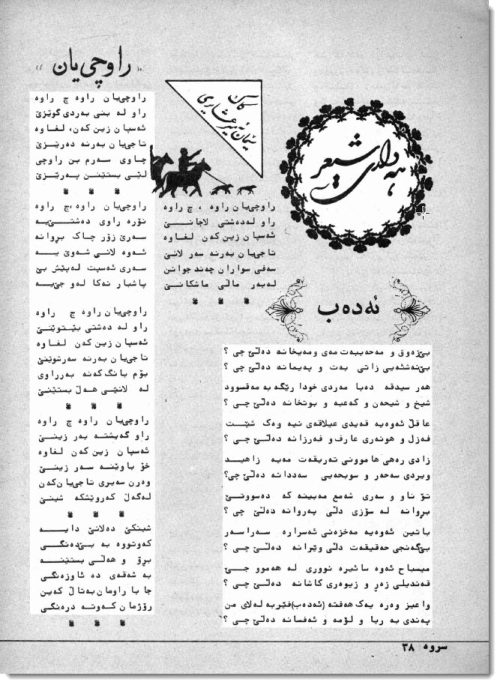 هەڵدێری شیعر
«راوچی‌یان»
راوچی‌یان راوە چ راوە
راو لە بنی بەردی گوێزێ
ئەسپان زین کەن، لغاوە
تاجی‌یان بەرنە دەرێزێ
چاوی سەرم بن راوچی
لێی بستێنن بەرێزێ
* * *
راوچی‌یان راوە ،چ راوە
نۆرە راوی دەشتێ‌یە
سەرێ زۆر چاک بڕوانە
ئەوە لانی شەوێ یە
سەرێ ئەسپت لەپێش بێ
پاشبار نەکا لەو جێ‌یە
راوچی‌یان راوە چ راوە
راو لە دەشتی بێتوێنێ
ئەسپان زین کەن لغاوە
تاجی‌یان بەرنە سەرتوێنێ
بۆم بانگ کەنە بەرراوی
لە لانێی هەڵ بستێنێ
* * *
راوچی‌یان راوە چ راوە
راو گەیشتە بەر زینێ
ئەسپان زین کەن لغاوە
خۆ باوێنە سەر زینێ
وەرن سەیری تاجی‌یان‌کەن
لەگەڵ کەروێشکە شینێ
* * *
شینکێ دەلانێ دایە
کەوتووە بە بێ‌دەنگی
بڕۆ و هەڵی بستێنە
بە شەقەی دە ئاوزەنگی
جا با راومان‌بەتاڵ کەین
رۆژمان کەوتە درەنگی
* * *
راوچی‌یان راوە ، چ راوە
راو لەدەشتی لاجانێ
ئەسپان زین کەن لغاوە
تاجی‌یان بەرنە سەر لانێ
سەفی سواران چەند جوانن
لەبەر ماڵی مامکانێ
* * *
ئەدەب
بێ‌زەوق و مەحەببەت مەی ومەیخانە دەڵێ چی ؟
بێ‌نەشئەیی زاتی بەت و پەیمانە دەڵێ چی ؟
هەر سیدقە دەبا مەردی خودا رێگە بە مەقسوود
شیخ و شیحەن و کەعبە و بوتخانە دەڵێ چی ؟
عاقڵ ئەوەیە قەیدی عیلاقەی نیە وەک شێت
فەزل و هونەری عارف و فەرزانە دەڵێ چی ؟
زادی رەهی هاموونی تەریقەت مەیە زاهید
ویردی سەحەر و سوبحەیی سەددانە دەڵێ چی؟
تۆ ناو و سەری شەمع مەبینە کە دەسووتێ
پروانە لە سۆزی دڵی پەروانە دەڵێ چی ؟
باتین ئەوەیە مەخزەنی ئەسرارە سەراسەر
بێ‌گەنجی حەقیقەت دڵی وێرانە دەڵێ چی ؟
میسباح ئەوە سائیرە نووری لە هەموو جێ
قەندیلی زەڕ و زیوەری کاشانە دەڵێ چی ؟
واعیز وەرە یەک هەفتە (ئەدەب)فێربەلەلای من
پەندی بە ریا و لۆمە و ئەفسانە دەڵێ چی ؟
سروە ٣٨